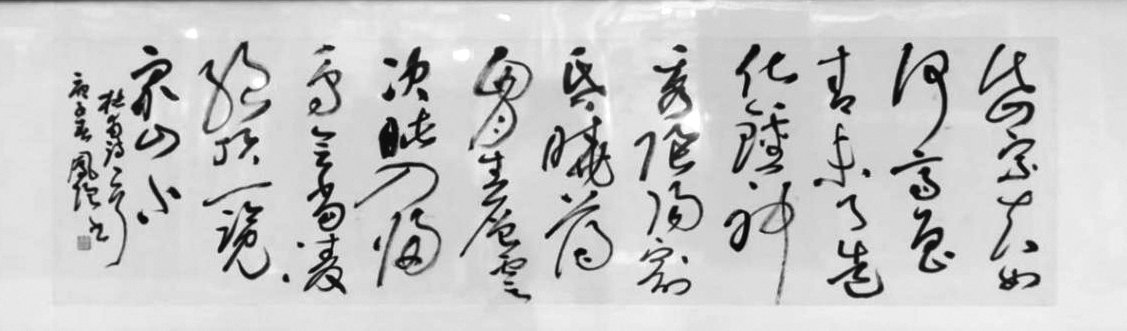 岱宗夫如
何齊魯
青未了造
化鍾神
秀陰陽割
昏曉蕩
胸生層雲
決眥入歸
鳥會當凌
絕頂一覽
衆山小
杜甫詩
庚子春鳳書